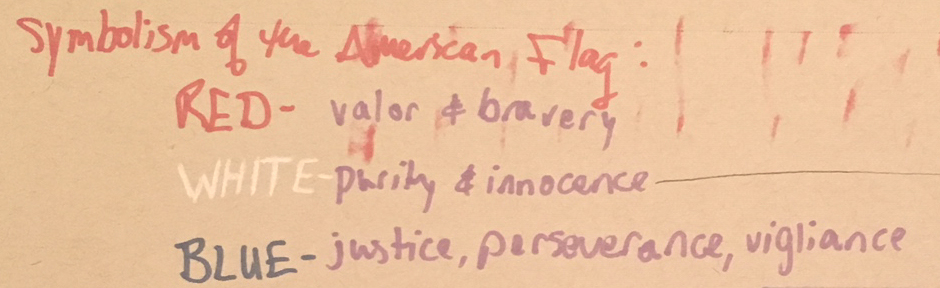 Symbolism of the American Flag:
RED- valor & bravery
WHITE- purity & innocence
BLUE- justice, perseverance, vigliance